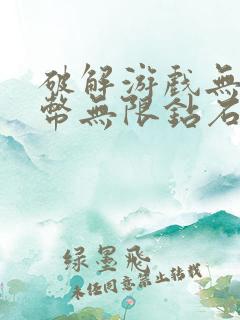 破解游戲無
幣無限鈷石
綠墨飛
未经同意禁止转载